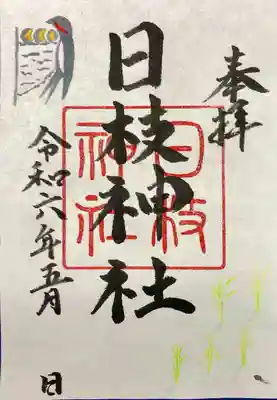 奉拝
日枝神社
日枝
神社
令和六年五月 日